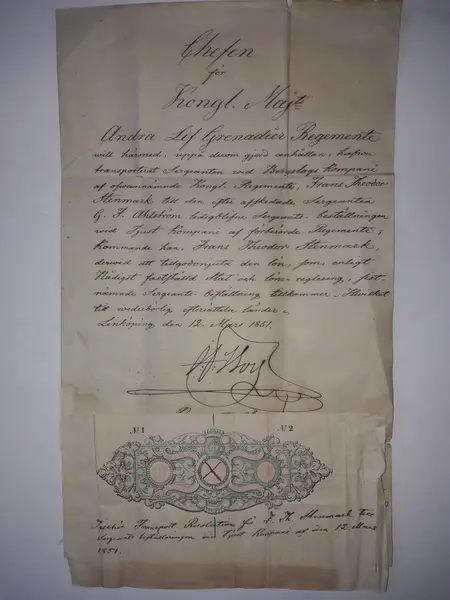 Chefen
för
Kongl. Majts
Andra Lif Grenadier Regemente
will härmed, uppå derom gjord anhållan, hafva
transporterat Sergeanten vid Bergslags Kompani
af ofvannämnde Kongl. Regemente, Frans Theodor
Stenmark till den efter afskedade Sergeanten
G. F. Ahlström ledigblifne Sergeants-beställningen
vid Tjust Kompani af förberörde Regemente;
Kommande han, Frans Theodor Stenmark,
dervid att tillgodonjuta den lön, som enligt
Nådigst fastställd Stat och löne-reglering, sist-
nämnde Sergeants-beställning tillkommer. Hvilket
till vederbörlig efterrättelse länder.
Linköping den 12. Mars 1851.
№ 1 № 2
Transport Resolution för F. Th. Stenmark
Sergeants beställningen vid Tjust Kompani af den 12 Mars
1851.